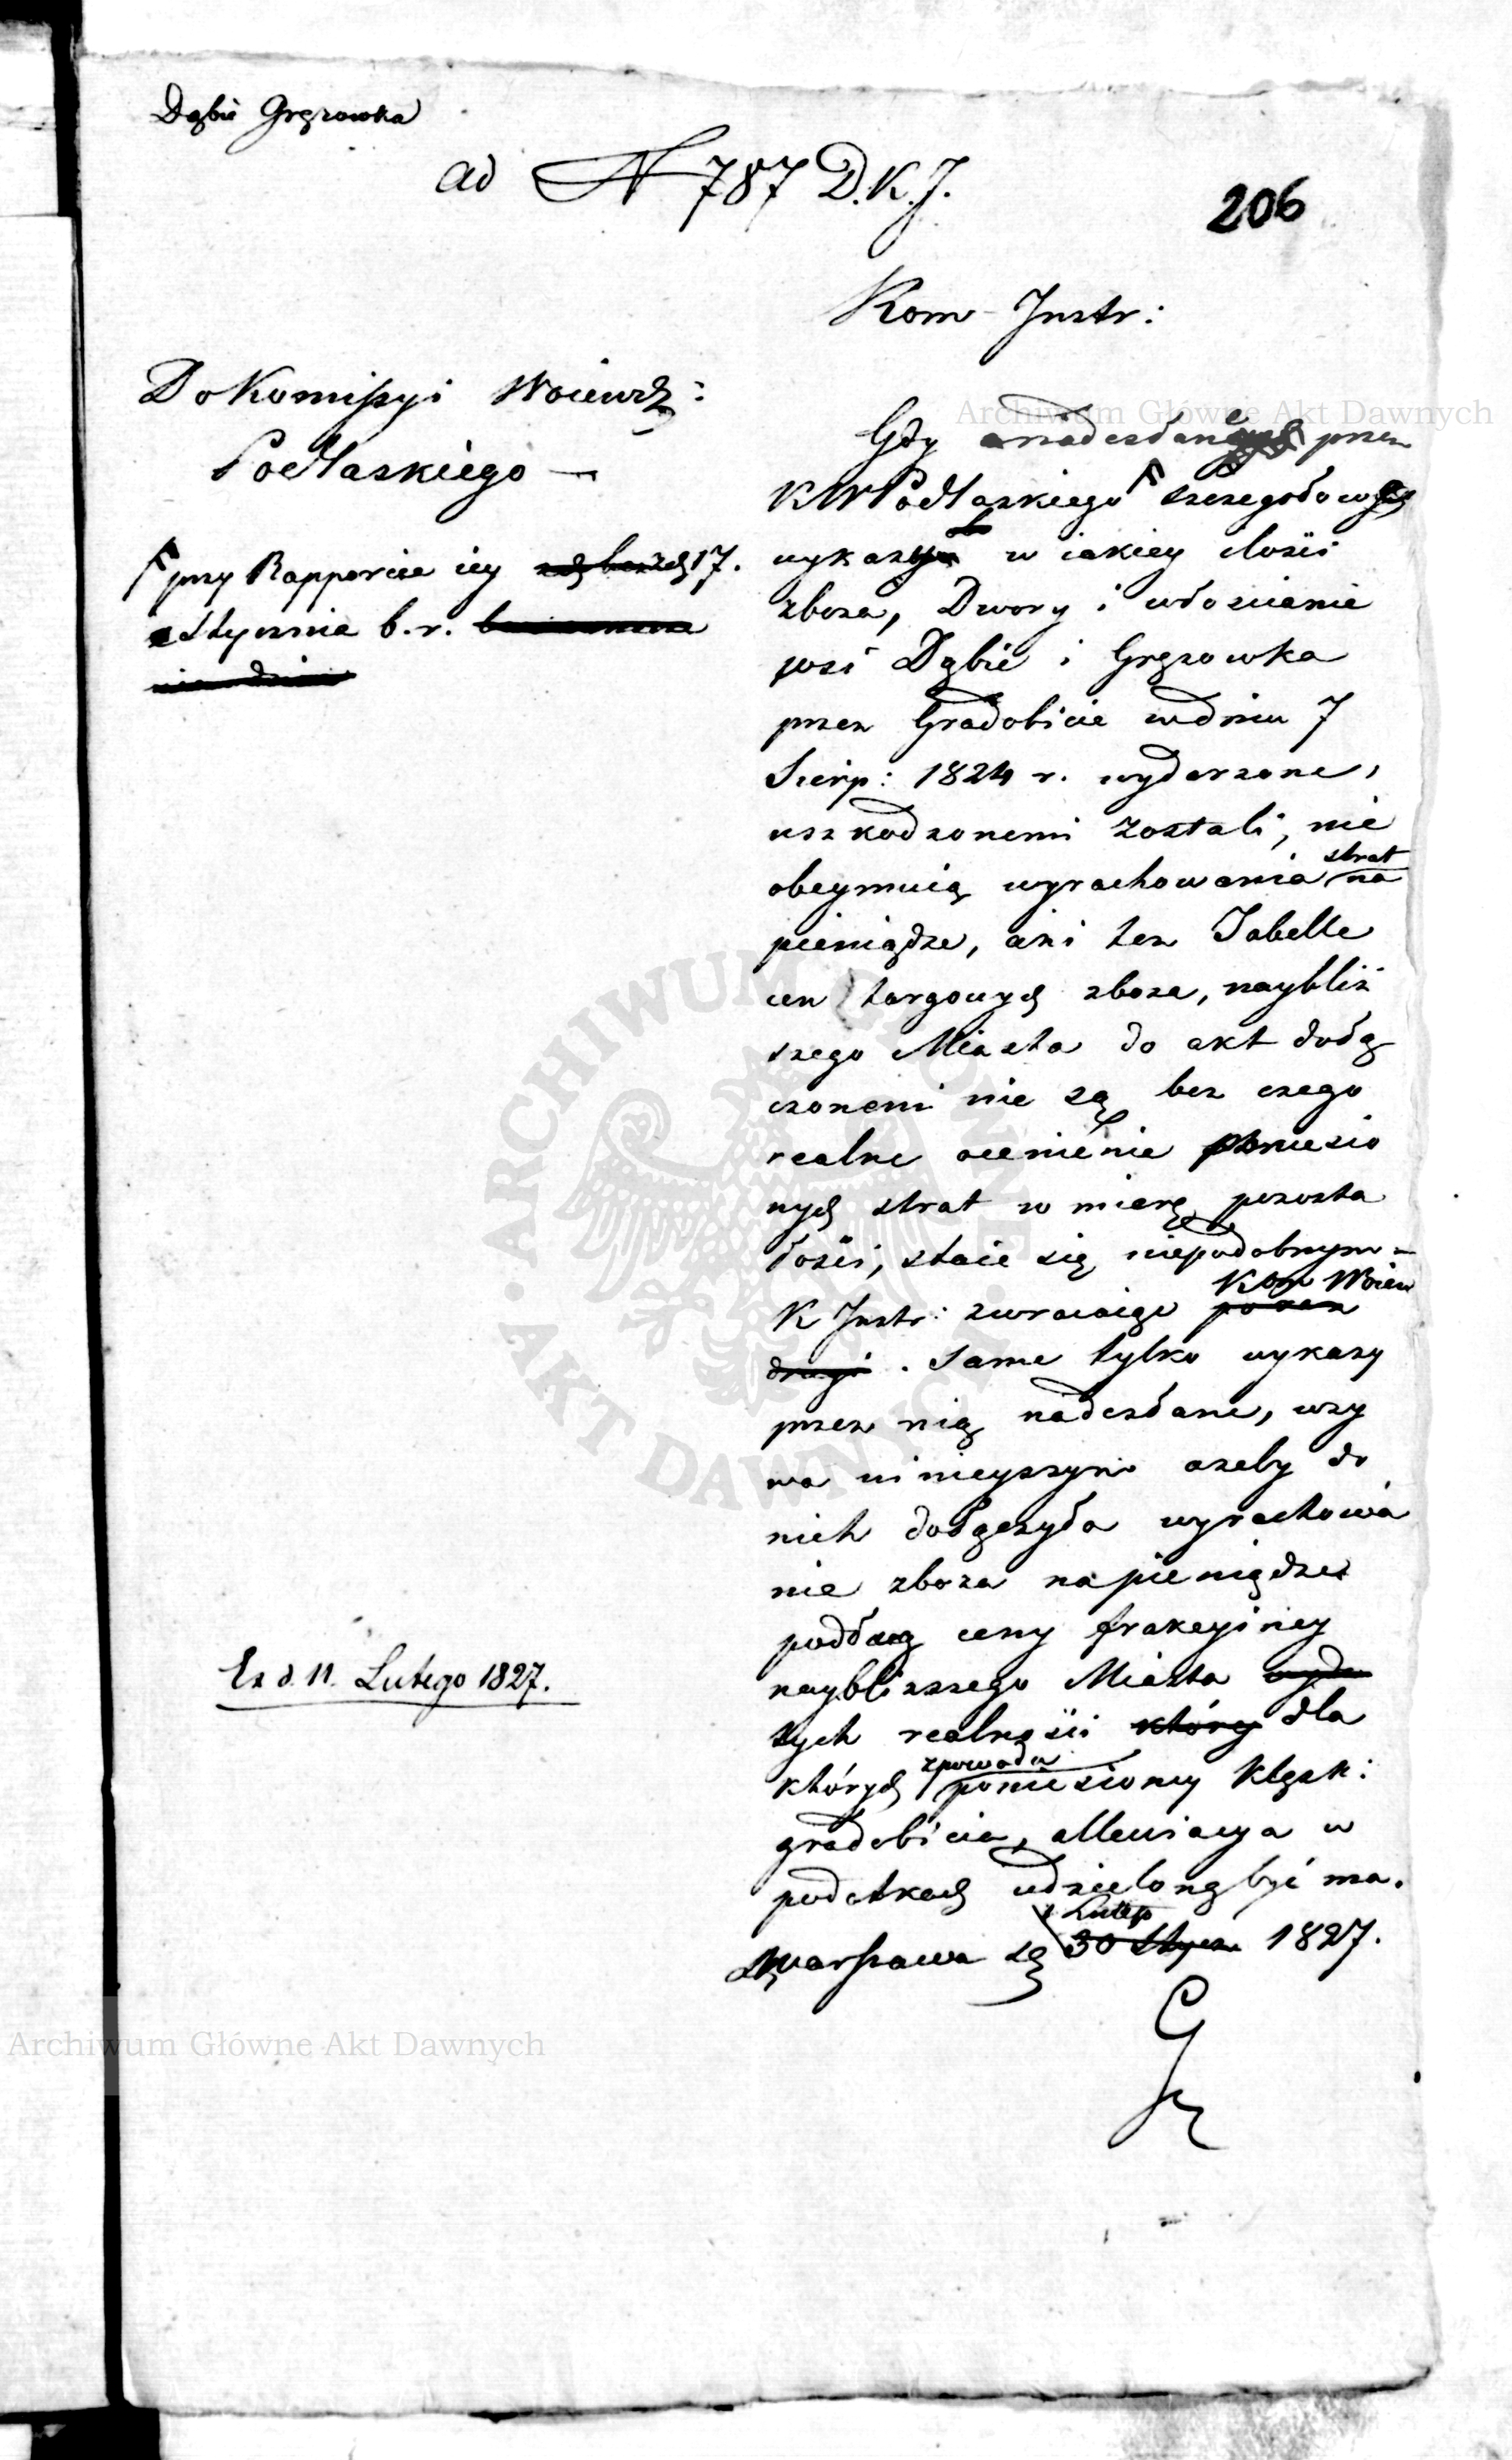 Dąbie Gręzowka
ad N 787 D.K.J.
206
Kom Instr:
Do Komissyi Woiewdz:
Podlaskiego —
przy Rapporcie iey 17.
Stycznia b. r.
Gdy nadesłane przez
KW Podlaskiego szczegołowe
wykazy w iakiey ilości
zboza, Dwory i włoscianie
wsi Dąbie i Gręzowka
przez Gradobicie w dniu 7
Sierp: 1824 r. wydarzone,
uszkodzonemi zostali, nie
obeymuią wyrachowania strat na
pieniądze, ani tez Tabelle
cen targowych zboza, naybliż
szego Miasta do akt dołą
czonemi nie są bez czego
realne ocenienie poniesio
nych strat w miarę pozosta
łości, staie się niepodobnym =
K Instr: zwracaiąc Kom Woiew
same tylko wykazy
przez nią nadesłane, wzy
wa ninieyszym azeby do
nich dołączyła wyrachowa
nie zboza na pieniądze
podług ceny frakcyiney
nayblizszego Miasta
tych realności dla
których zpowodu poniesioney klęsk:
gradobicia, alleviacya w
podatkach udzieloną być ma.
w Warszawie d 1 Lutego 30 Stycz 1827.
Ex d. 11. Lutego 1827.
Archiwum Główne Akt Dawnych
ARCHIWUM GŁÓWNE • AKT DAWNYCH •
Archiwum Główne Akt Dawnych